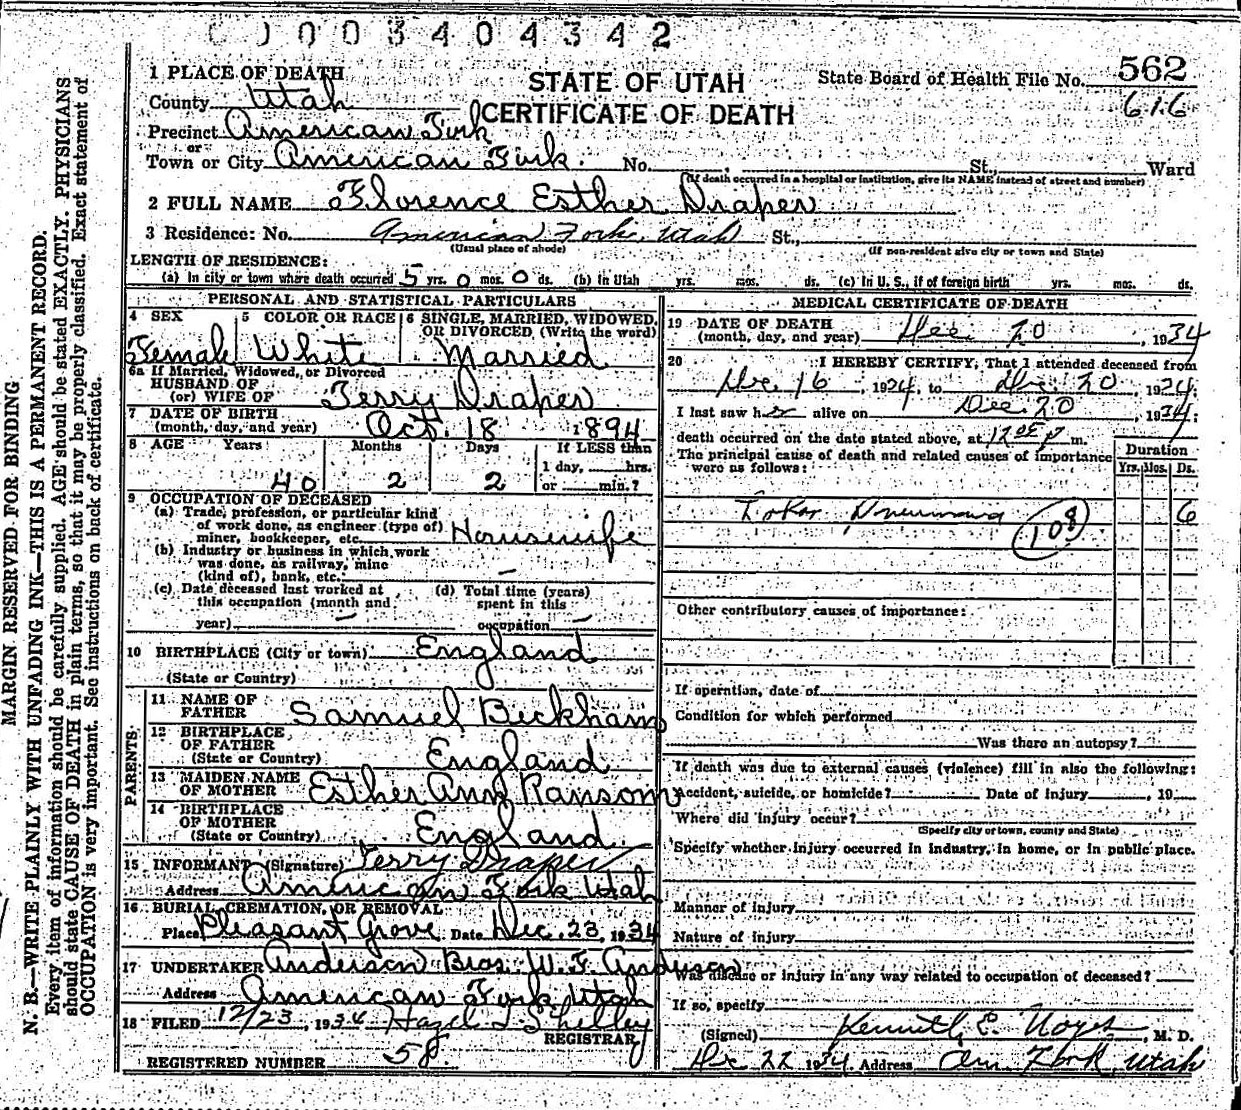 0003404342
1 PLACE OF DEATH
STATE OF UTAH
CERTIFICATE OF DEATH
State Board of Health File No. 562
616
County Utah
Precinct American Fork
or
Town or City American Fork. No. St., Ward
(If death occurred in a hospital or institution, give its NAME instead of street and number)
2 FULL NAME Florence Esther Draper
3 Residence: No. American Fork, Utah St.,
(Usual place of abode) (If non-resident give city or town and State)
LENGTH OF RESIDENCE:
(a) In city or town where death occurred 5 yrs. 0 mos. 0 ds. (b) In Utah yrs. mos. ds. (c) In U. S., if of foreign birth yrs. mos. ds.
PERSONAL AND STATISTICAL PARTICULARS
4 SEX 5 COLOR OR RACE 6 SINGLE, MARRIED, WIDOWED,
OR DIVORCED (Write the word)
Female White Married
6a If Married, Widowed, or Divorced
HUSBAND OF
(or) WIFE OF Terry Draper
7 DATE OF BIRTH
(month, day, and year) Oct. 18 1894
8 AGE Years Months Days If LESS than
1 day, hrs.
or min.?
40 2 2
9 OCCUPATION OF DECEASED
(a) Trade, profession, or particular kind
of work done, as engineer (type of)
miner, bookkeeper, etc. Housewife
(b) Industry or business in which work
was done, as railway, mine
(kind of), bank, etc. —
(c) Date deceased last worked at
this occupation (month and
year) —
(d) Total time (years)
spent in this
occupation —
10 BIRTHPLACE (City or town) England
(State or Country)
PARENTS
11 NAME OF
FATHER Samuel Beckham
12 BIRTHPLACE
OF FATHER
(State or Country) England
13 MAIDEN NAME
OF MOTHER Esther Ann Ransom
14 BIRTHPLACE
OF MOTHER
(State or Country) England
15 INFORMANT (Signature) Terry Draper
Address American Fork Utah
16 BURIAL, CREMATION, OR REMOVAL
Place Pleasant Grove Date Dec. 23, 1934
17 UNDERTAKER Anderson Bros. W. F. Anderson
Address American Fork Utah
18 FILED 12/23, 1934 Hazel I Shelley
REGISTRAR
REGISTERED NUMBER 58
MEDICAL CERTIFICATE OF DEATH
19 DATE OF DEATH
(month, day, and year) Dec 20, 1934
20 I HEREBY CERTIFY, That I attended deceased from
Dec 16, 1924, to Dec 20, 1924;
I last saw her alive on Dec. 20, 1934;
death occurred on the date stated above, at 12 05 P m.
The principal cause of death and related causes of importance
were as follows:
Duration
Yrs. Mos. Ds.
Lobar Pneumonia 108 6
Other contributory causes of importance:
If operation, date of
Condition for which performed
Was there an autopsy?
If death was due to external causes (violence) fill in also the following:
Accident, suicide, or homicide? Date of injury, 19
Where did injury occur?
(Specify city or town, county and State)
Specify whether injury occurred in industry, in home, or in public place.
Manner of injury
Nature of injury
Was disease or injury in any way related to occupation of deceased?
If so, specify
(Signed) Kenneth E. Noyes, M. D.
Dec 22 1934 Address Am. Fork, Utah
MARGIN RESERVED FOR BINDING
N. B.—WRITE PLAINLY WITH UNFADING INK—THIS IS A PERMANENT RECORD.
Every item of information should be carefully supplied. AGE should be stated EXACTLY. PHYSICIANS
should state CAUSE OF DEATH in plain terms, so that it may be properly classified. Exact statement of
OCCUPATION is very important. See instructions on back of certificate.